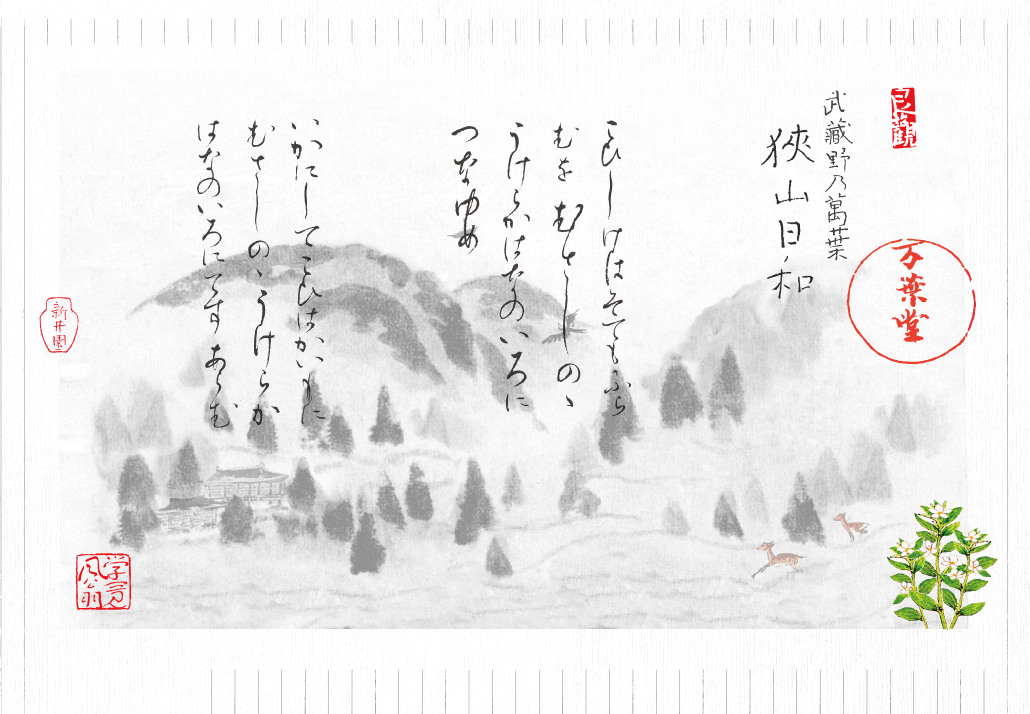 武藏野乃萬葉
狹山日和
万葉堂
こひしけはそてもふら
むを むさしのゝ
うけらかはなのいろに
つなゆめ
いかにしてこひはかいもに
むさしのゝうけらか
はなのいろにてすあらむ
新井園